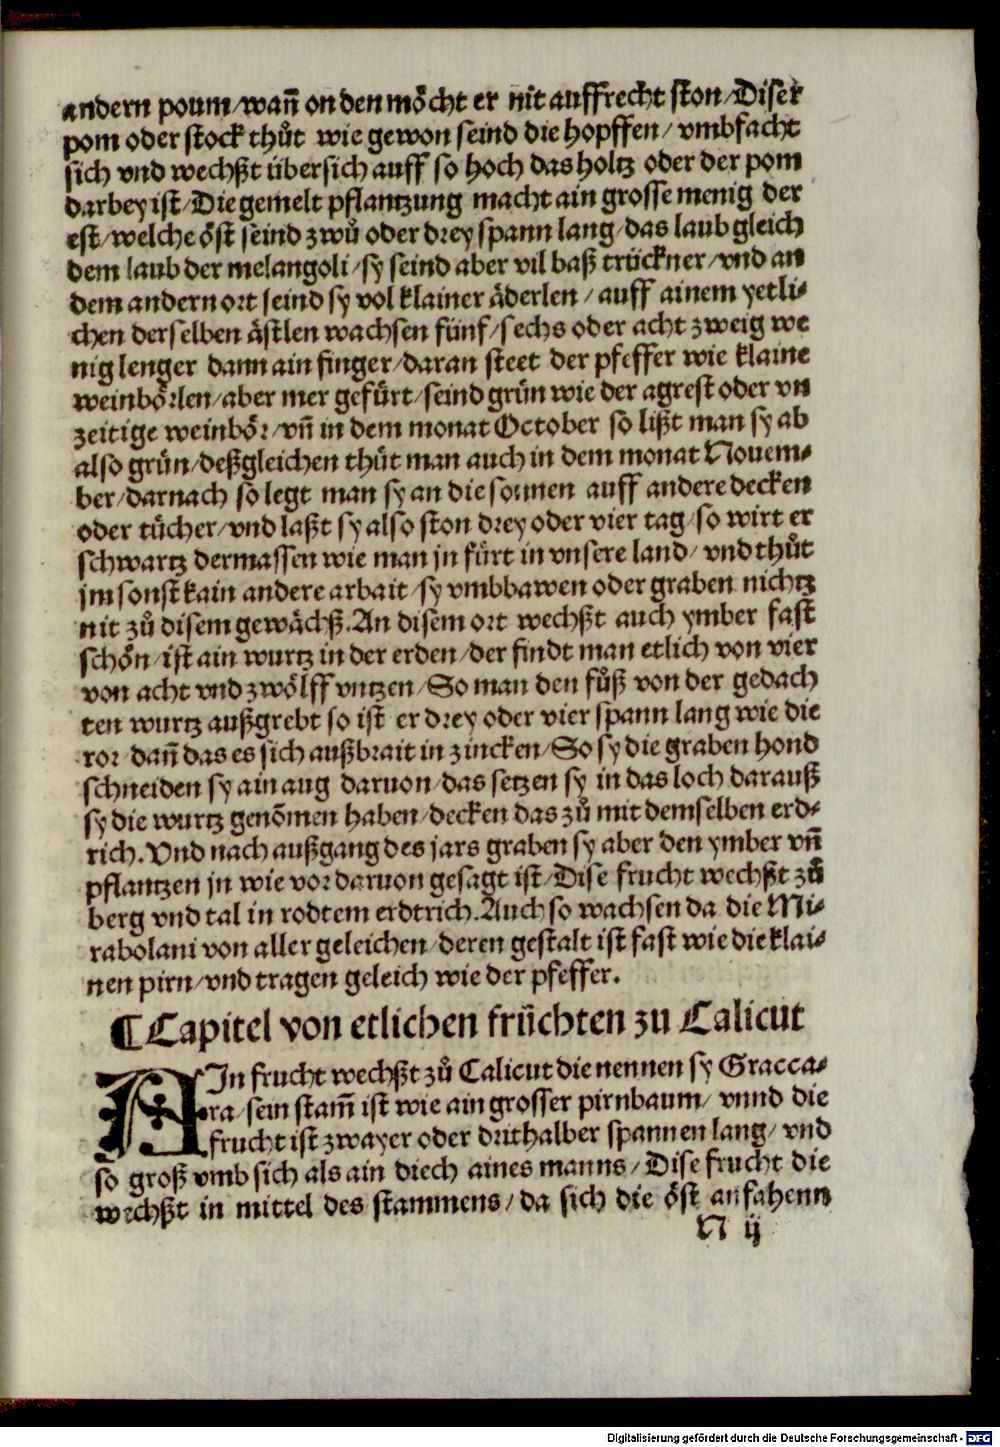 andern poum/wañ on den mo᷑cht er nit auffrecht ston/Diser
pom oder stock thůt wie gewon seind die hopffen/vmbfacht
sich vnd wechßt übersich auff so hoch das holtz oder der pom
darbey ist/Die gemelt pflantzung macht ain grosse menig der
est/welche öst seind zwů oder drey spann lang/das laub gleich
dem laub der melangoli/sy seind aber vil baß trückner/vnd an
dem andern ort seind sy vol klainer äderlen/auff ainem yetli⸗
chen derselben ästlen wachsen fünf/sechs oder acht zweig we
nig lenger dann ain finger/daran steet der pfeffer wie klaine
weinbörlen/aber mer gefürt/seind grün wie der agrest oder vn
zeitige weinbör/vñ in dem monat October so lißt man sy ab
also grün/deßgleichen thüt man auch in dem monat Nouem⸗
ber/darnach so legt man sy an die sonnen auff andere decken
oder tücher/vnd laßt sy also ston drey oder vier tag/so wirt er
schwartz dermassen wie man jn fürt in vnsere land/vnd thůt
jm sonst kain andere arbait/sy vmbbawen oder graben nichtz
nit zů disem gewächß.An disem ort wechßt auch ymber fast
schön/ist ain wurtz in der erden/der findt man etlich von vier
von acht vnd zwölff vntzen/So man den fůß von der gedach
ten wurtz außgrebt so ist er drey oder vier spann lang wie die
ror dañ das es sich außbrait in zincken/So sy die graben hond
schneiden sy ain aug daruon/das setzen sy in das loch darauß
sy die wurtz genõmen haben/decken das zů mit demselben erd⸗
rich.Vnd nach außgang des jars graben sy aber den ymber vñ
pflantzen jn wie vor daruon gesagt ist/Dise frucht wechßt zů
berg vnd tal in rodtem erdtrich.Auch so wachsen da die Mi⸗
rabolani von aller geleichen/deren gestalt ist fast wie die klai⸗
nen pirn/vnd tragen geleich wie der pfeffer.
¶Capitel von etlichen früchten zu Calicut
AIn frucht wechßt zů Calicut die nennen sy Gracca⸗
ra/sein stam̃ ist wie ain grosser pirnbaum/vnnd die
frucht ist zwayer oder drithalber spannen lang/vnd
so groß vmb sich als ain diech aines manns/Dise frucht die
wechßt in mittel des stammens/da sich die öst anfahenn
N ij
Digitalisierung gefördert durch die Deutsche Forschungsgemeinschaft - DFG